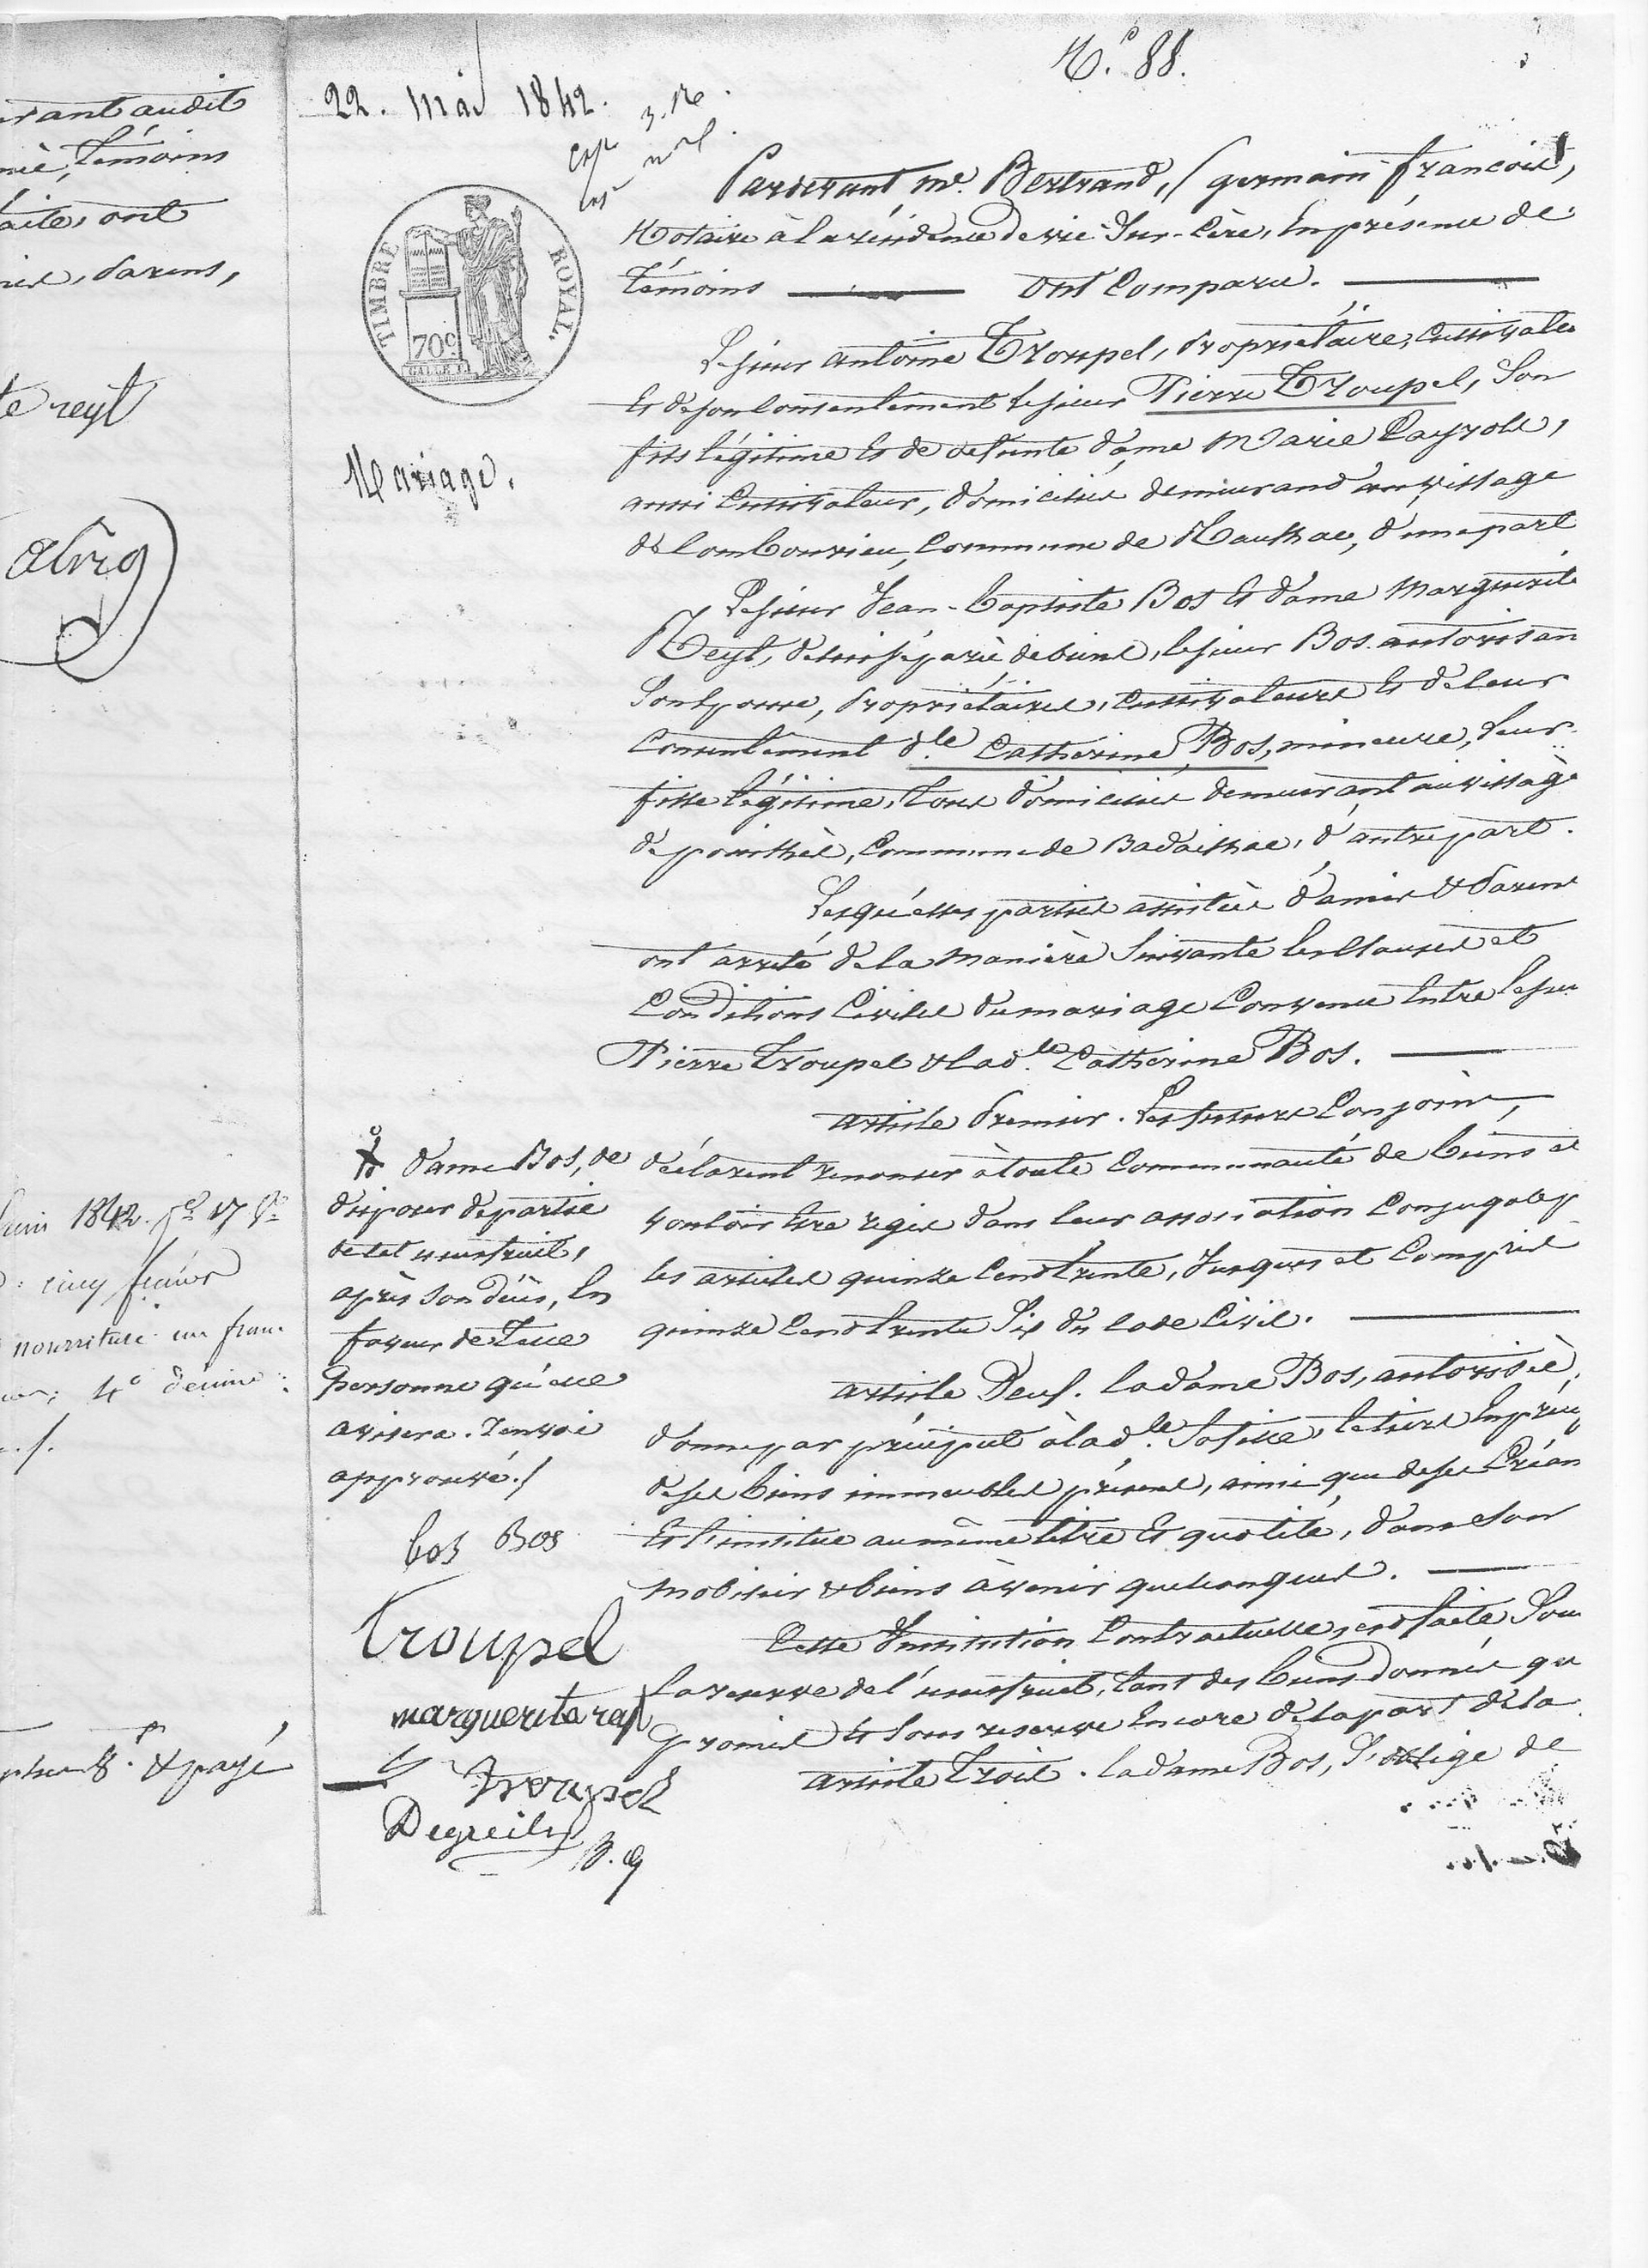 vant audit
témoins
ont
parens,
reyt
N.o 88.
22. mai 1842.
TIMBRE ROYAL.
70c
Mariage.
Pardevant me. Bertrand, (germain françois),
Notaire à la résidence de vic-Sur-Cère, En présence de
témoins ont Comparu.
Le sieur antoine Troupel, propriétaire, cultivateur
Et de son Consentement le sieur Pierre Troupel, Son
fils légitime Et de défunte dame Marie Layrole,
aussi Cultivateur, domiciliés demeurand au village
de Commune de Raulhac, d'une part
Le sieur Jean-baptiste Bos Et dame Marguerite
Reyt, de lui séparée de biens, le sieur Bos autorisan
Son Epouse, propriétaires, cultivateurs Et de leur
Consentement dlle. Catherine Bos, mineure, leur
fille légitime, tous domiciliés demeurant au village
de Commune de Badailhac, d'autre part.
Lesquelles parties assistées d'amis & parens
ont arrêté de la manière Suivante les Clauses et
Conditions Civiles du mariage Convenu Entre le sieur
Pierre Troupel & lad.lle Catherine Bos.
article Premier. Les futurs Conjoins,
déclarent renoncer à toute Communauté de biens et
vouloir Etre régis dans leur association Conjugale p
les articles quinze Cend trente, Jusques et Compris
quinze Cend trente Six du Code Civil.
article Deux. la dame Bos, autorisée,
donne par préciput à lad.lle Sa fille, le tiers En préc
de ses biens immeubles présens, ainsi que de ses Créan
Et l'institue au même titre Et quotité, dans Son
Mobilier & biens à venir quelconques.
Cette Institution Contractuelle, est faite Sous
la reserve de l'usufruit, tant des biens donnés qu
promis Et Sous reserve Encore de la part de la
article trois. la dame Bos, S'oblige de
dame Bos, de
disposer de partie
de cet usufruit,
après Son décès, En
faveur de telle
personne qu'elle
avisera. renvoi
approuvé./
bos Bos
Troupel
marguerite rey
Troupel
Degreily
B. G
Juin 1842.
cinq
nourriture un franc
4e
& payé